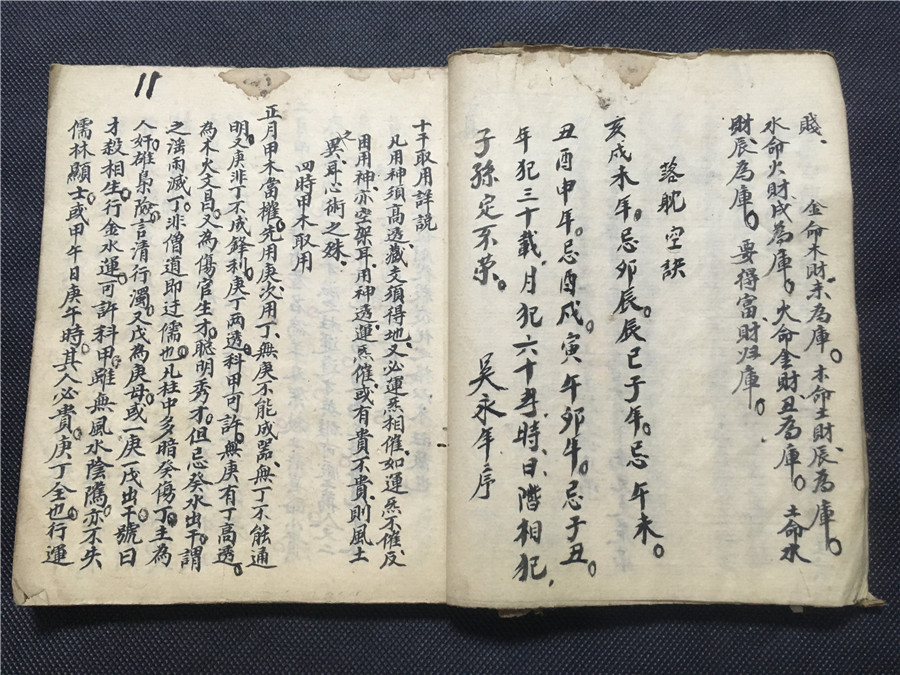 賤、 金命木財未為庫。木命土財辰為庫。
水命火財戌為庫。火命金財丑為庫。土命水
財辰為庫。要得富、財归庫。
落躭空訣
亥戌未年。忌卯辰。辰巳子年。忌午未。
丑酉申年。忌酉戌。寅午卯年。忌子丑。
年犯三十載、月犯六十年、時、日、階相犯、
子孫定不荣。
吴永年序
十干取用詳説
凡用神須高透、藏支須得地、又必運炁相催、如運炁不催、反
困用神、亦空架耳、用神透、運炁催、或有貴不貴、則風土
之異、耳、心術之殊。
四時甲木取用
正月甲木當權、先用庚、次用丁、無庚不能成器、無丁不能通
明、又庚非丁不成鋒利、庚丁两透、科甲可許、無庚有丁高透、
為木火文昌、又為傷官生才、聡明秀才。但忌癸水出干、謂
之溼雨滅丁、非僧道即迂儒也、凡柱中多暗癸傷丁、主為
人奸雄梟險、言清行濁、又戊為庚母、或一庚一戊出干、號曰
才殺相生、行金水運、可許科甲、雖無風水陰隲、亦不失
儒林顯士、或甲午日庚午時、其人必貴、庚丁全也、行運
11